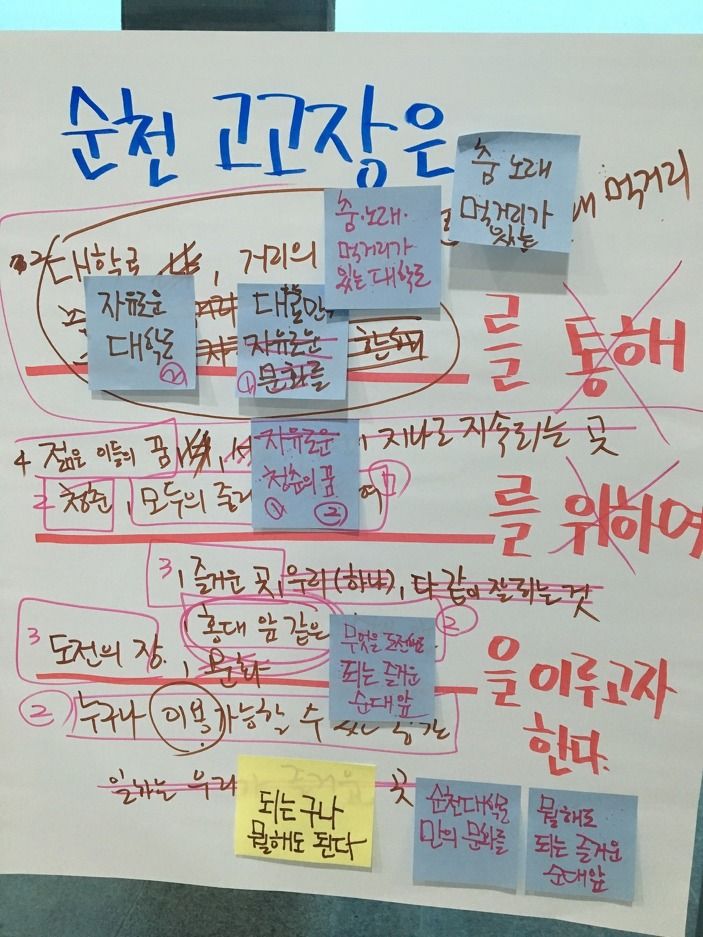 순천 고고장은
춤 노래
먹거리가
있는
먹거리
춤·노래·
먹거리가
있는 대학로
2 대학로
거리의
자유로운
대학로
②
대학만
자유로운
① 문화를
를 통해
4 젊은 이들의 꿈
지나로 지속되는 곳
자유로운
청춘의 꿈
① ②
2 청춘, 모두의 즐거
여 ①
를 위하여
3, 즐거운 곳, 우리(하나), 다 같이 잘되는 것
홍대 앞 같은
②
3 도전의 장.
, 문화
무엇을 도전해도
되는 즐거운
순대앞
을 이루고자
한다.
② 누구나 이용 가능할 수
일하는 우리
곳
되는구나
뭘해도 된다
순천대학로
만의 문화를
뭘해도
되는 즐거운
순대앞